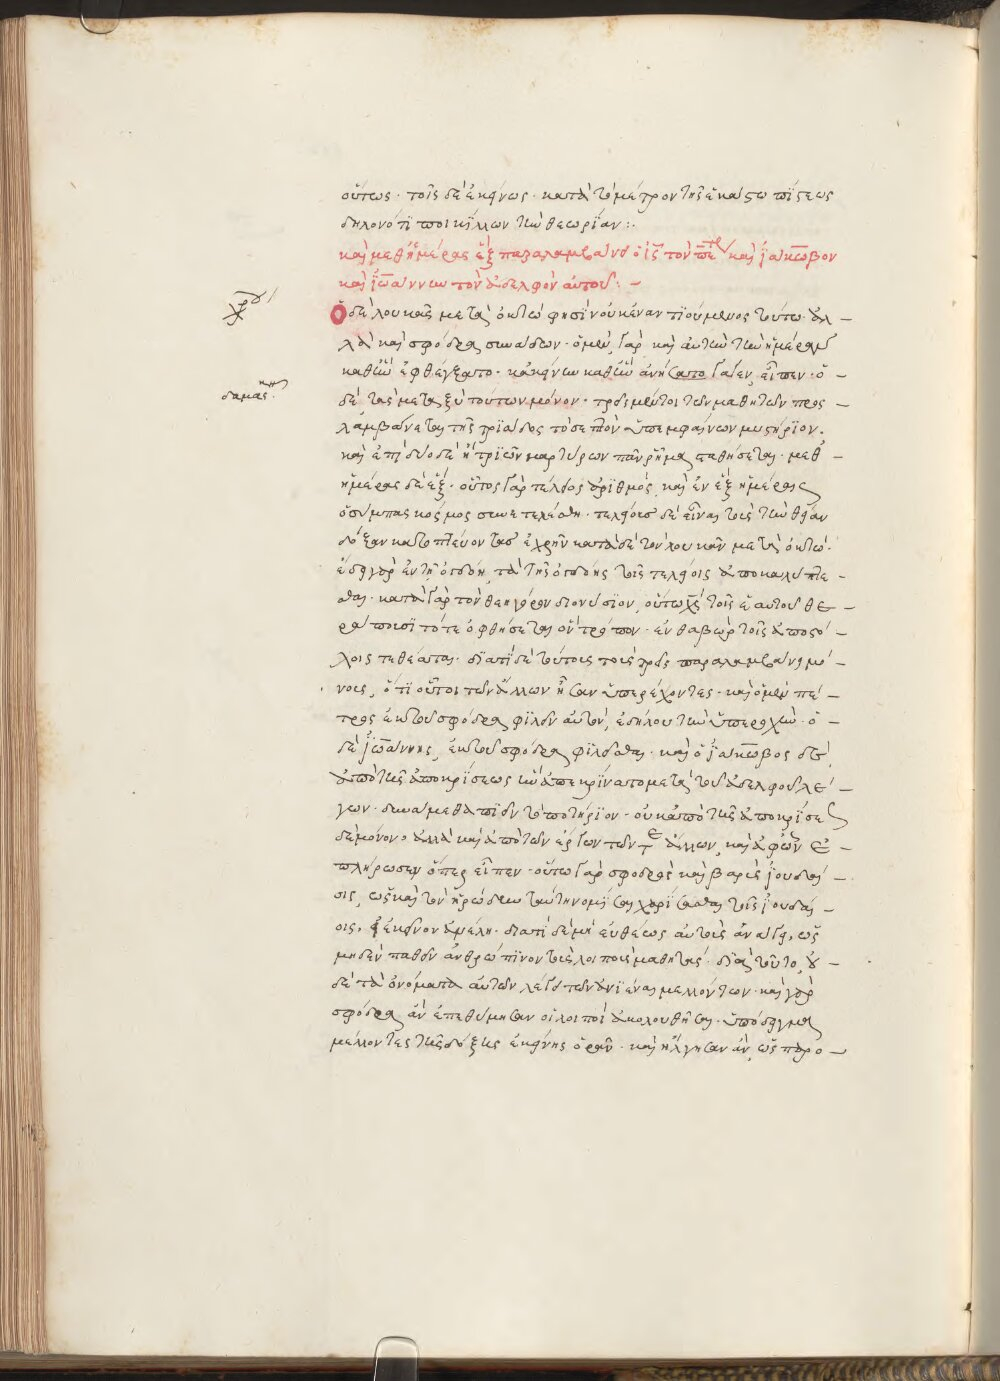 οὕτως· τοῖς δὲ ἐκείνως· κατὰ τὸ μέτρον τῆς ἑκάστω πίστεως
δηλονότι ποικίλλων τὴν θεωρίαν:·
καὶ μεθ' ἡμέρας ἓξ παραλαμβάνει ὁ ἰς τὸν πέτρ καὶ ἰάκωβον
καὶ ἰωάννην τὸν ἀδελφὸν αὐτοῦ:–
χρυ
Ὁ δὲ λουκᾶς μετὰ ὀκτώ φησὶν οὐκ ἐναντιούμενος τούτω· ἀλ–
λὰ καὶ σφόδρα συνάδων· ὁ μὲν γὰρ καὶ αὐτὴν τὴν ἡμέραν
καθ' ἣν ἐφθέγξατο· κἀκείνην καθ' ἣν ἀνήγαγεν, εἶπεν· ὁ–
δαμασκη
δὲ τὰς μεταξὺ τούτων μόνον· πρόκριτοι τῶν μαθητῶν προς
λαμβάνεται τῆς τριάδος τὸ σεπτὸν ὑπεμφαίνων μυστήριον.
καὶ ἐπὶ δύο δὲ ἢ τριῶν μαρτύρων πᾶν ῥῆμα σταθήσεται· μεθ'–
ἡμέρας δὲ ἓξ· οὗτος γὰρ τέλειος ἀριθμός, καὶ ἐν ἓξ ἡμέραις
ὁ σύμπας κόσμος συνετελέσθη· τελείους δὲ εἶναι τοὺς τὴν θείαν
δόξαν κατοπτεύοντας ἐχρῆν κατὰ δὲ τὸν λουκᾶν μετὰ ὀκτώ·
ἔδει γὰρ ἐν τῇ ὀγδόῃ, τὰ τῆς ὀγδόης τοῖς τελείοις ἀποκαλύπτε–
σθαι· κατὰ γὰρ τὸν θεηγόρον διονύσιον, οὕτω χς τοῖς ἑαυτοῦ θε–
ράπουσι τότε ὀφθήσεται ὃν τρόπον· ἐν θαβὼρ τοῖς ἀποστό–
λοις τεθέαται· διατί δὲ τούτους τοὺς τρεῖς παραλαμβάνει μό–
νους, ὅτι οὗτοι τῶν ἄλλων ἦσαν ὑπερέχοντες· καὶ ὁ μὲν πέ–
τρος ἐκ τοῦ σφόδρα φιλεῖν αὐτόν, ἐδήλου τὴν ὑπεροχήν· ὁ–
δὲ ἰωάννης, ἐκ τοῦ σφόδρα φιλεῖσθαι· καὶ ὁ ἰάκωβος δὲ,
ἀπὸ τῆς ἀποκρίσεως ἣν ἀπεκρίνατο μετὰ τοῦ ἀδελφοῦ λέ–
γων· δυνάμεθα πιεῖν τὸ ποτήριον· οὐκ ἀπὸ τῆς ἀποκρίσε
δὲ μόνον· ἀλλὰ καὶ ἀπὸ τῶν ἔργων τῶν τε ἄλλων, καὶ ἀφ' ὧν ἐ–
πλήρωσεν ἅπερ εἶπεν· οὕτω γὰρ σφοδρὸς καὶ βαρὺς ἰουδαί–
οις, ὡς καὶ τὸν ἡρώδην ταύτην ομίσαι χαρίσασθαι τοῖς ἰουδαί–
οις, εἰ ἐκεῖνον ἀνέλῃ· διατί δὲ μὴ εὐθέως αὐτοὺς ἀνάγει, ὡς
μηδὲν παθεῖν ἀνθρώπινον τοὺς λοιποὺς μαθητάς· διὰ τοῦτο, οὐ–
δὲ τὰ ὀνόματα αὐτῶν λέγει τῶν ἀνιέναι μελλόντων· καὶ γὰρ
σφόδρα ἂν ἐπεθύμησαν οἱ λοιποὶ ἀκολουθῆσαι· ὑπόδειγμα
μέλλοντες τῆς δόξης ἐκείνης ὁρᾶν· καὶ ἤλγησαν ἄν, ὡς παρο–